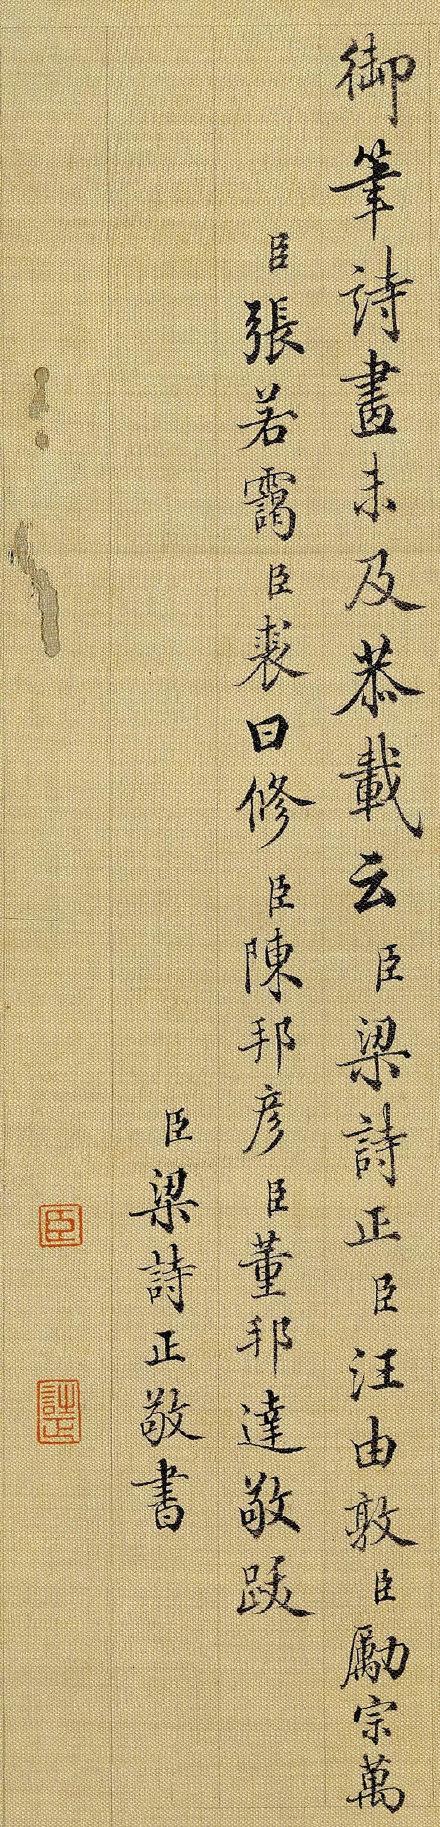 御筆詩畫未及恭載云臣梁詩正臣汪由敦臣勵宗萬
臣張若靄臣裘曰修臣陳邦彦臣董邦達敬跋
臣梁詩正敬書
臣
詩正